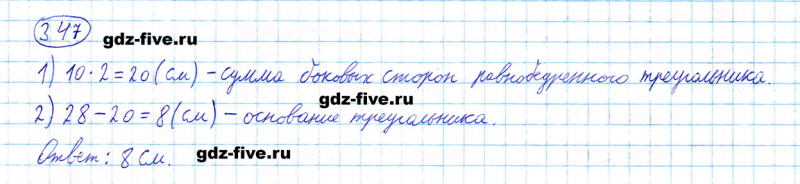 347
gdz-five.ru
1) 10·2=20(см) – сумма боковых сторон равнобедренного треугольника.
gdz-five.ru
2) 28–20=8(см) – основание треугольника.
Ответ: 8 см.
gdz-five.ru